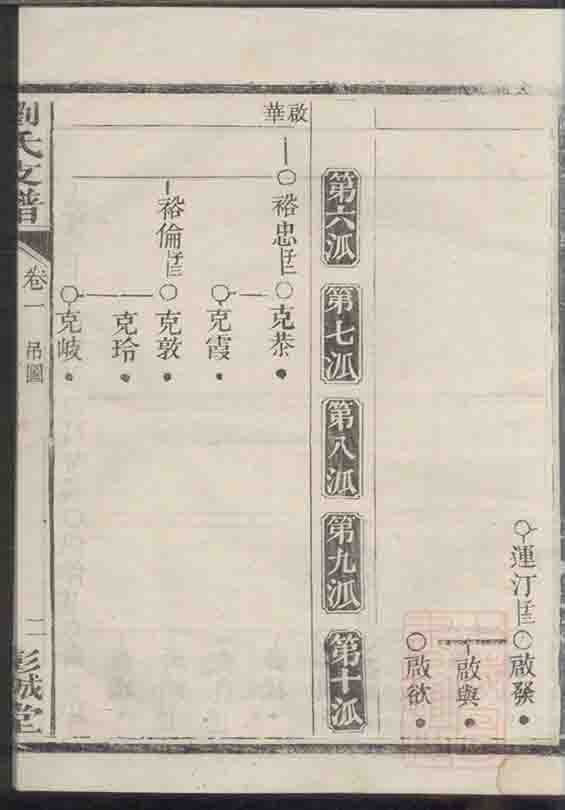 運汀子三
啟發
啟與
啟欲
第六派
第七派
第八派
第九派
第十派
啟華
裕忠子二
克恭
克霞
裕倫子三
克敦
克玲
克岐
劉氏支譜
卷一
吊圖
二
彭城堂